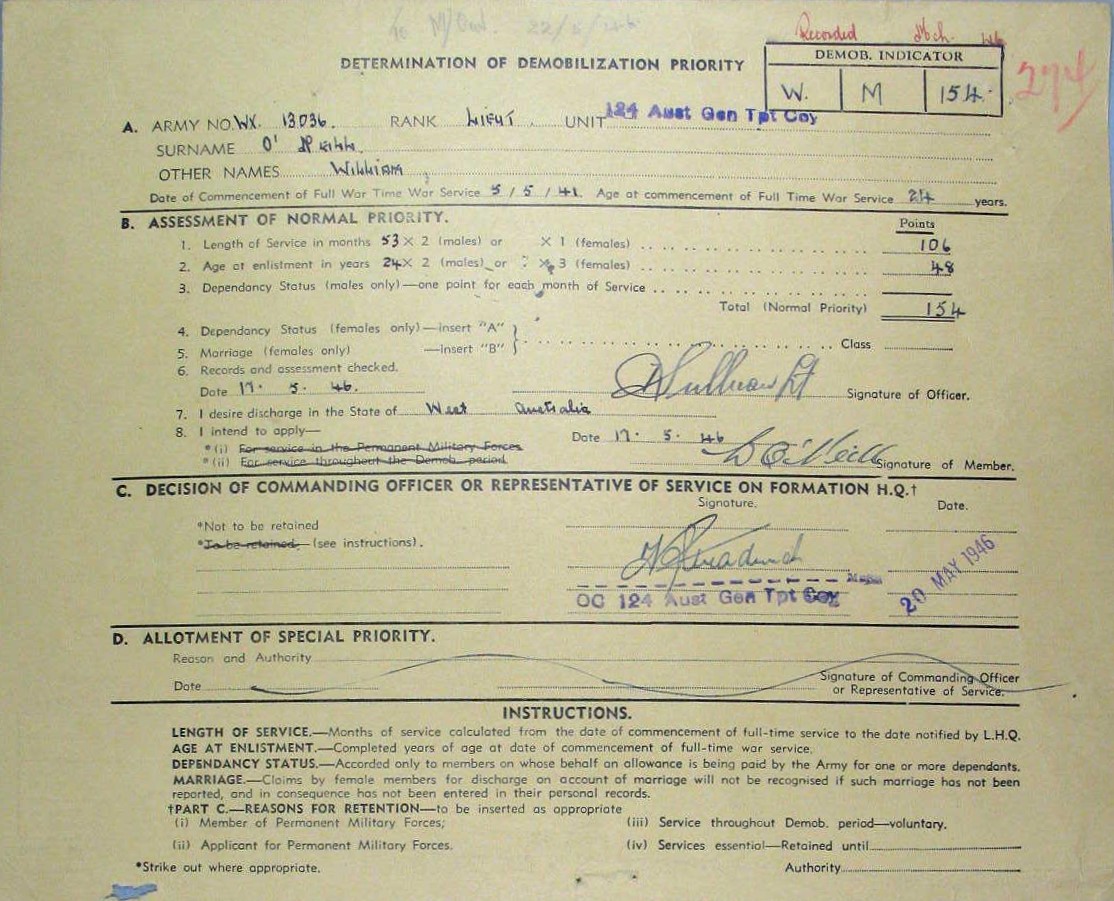 To M/Ord. 22/5/46
Recorded Mch. 46
DETERMINATION OF DEMOBILIZATION PRIORITY
DEMOB. INDICATOR
W. M 154.
274
A. ARMY NO. WX. 13036. RANK LIEUT. UNIT 124 Aust Gen Tpt Coy
SURNAME O'NEILL.
OTHER NAMES WILLIAM,
Date of Commencement of Full War Time War Service 5 / 5 / 41. Age at commencement of Full Time War Service 24 years.
B. ASSESSMENT OF NORMAL PRIORITY.
Points
1. Length of Service in months 53 × 2 (males) or × 1 (females) 106
2. Age at enlistment in years 24 × 2 (males) or × 3 (females) 48
3. Dependancy Status (males only)—one point for each month of Service
Total (Normal Priority) 154
4. Dependancy Status (females only)—insert "A"
5. Marriage (females only) —Insert "B" Class
6. Records and assessment checked.
Date 17. 5. 46. Signature of Officer.
7. I desire discharge in the State of West Australia
8. I intend to apply— Date 17. 5. 46
*(i) For service in the Permanent Military Forces
*(ii) For service throughout the Demob. period. W O'Neill Signature of Member.
C. DECISION OF COMMANDING OFFICER OR REPRESENTATIVE OF SERVICE ON FORMATION H.Q.†
Signature. Date.
*Not to be retained
*To be retained, (see instructions).
Major
OC 124 Aust Gen Tpt Coy 20 MAY 1946
D. ALLOTMENT OF SPECIAL PRIORITY.
Reason and Authority
Date Signature of Commanding Officer
or Representative of Service.
INSTRUCTIONS.
LENGTH OF SERVICE.—Months of service calculated from the date of commencement of full-time service to the date notified by L.H.Q.
AGE AT ENLISTMENT.—Completed years of age at date of commencement of full-time war service.
DEPENDANCY STATUS.—Accorded only to members on whose behalf an allowance is being paid by the Army for one or more dependants.
MARRIAGE.—Claims by female members for discharge on account of marriage will not be recognised if such marriage has not been
reported, and in consequence has not been entered in their personal records.
†PART C.—REASONS FOR RETENTION—to be inserted as appropriate
(i) Member of Permanent Military Forces; (iii) Service throughout Demob. period—voluntary.
(ii) Applicant for Permanent Military Forces. (iv) Services essential—Retained until
*Strike out where appropriate. Authority